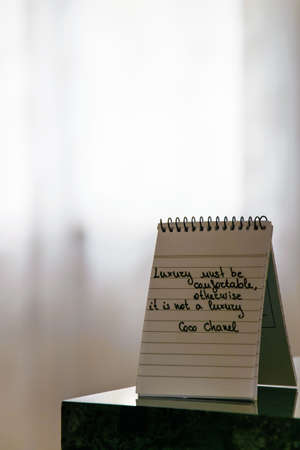 Luxury must be
comfortable,
otherwise
it is not a luxury
Coco Chanel